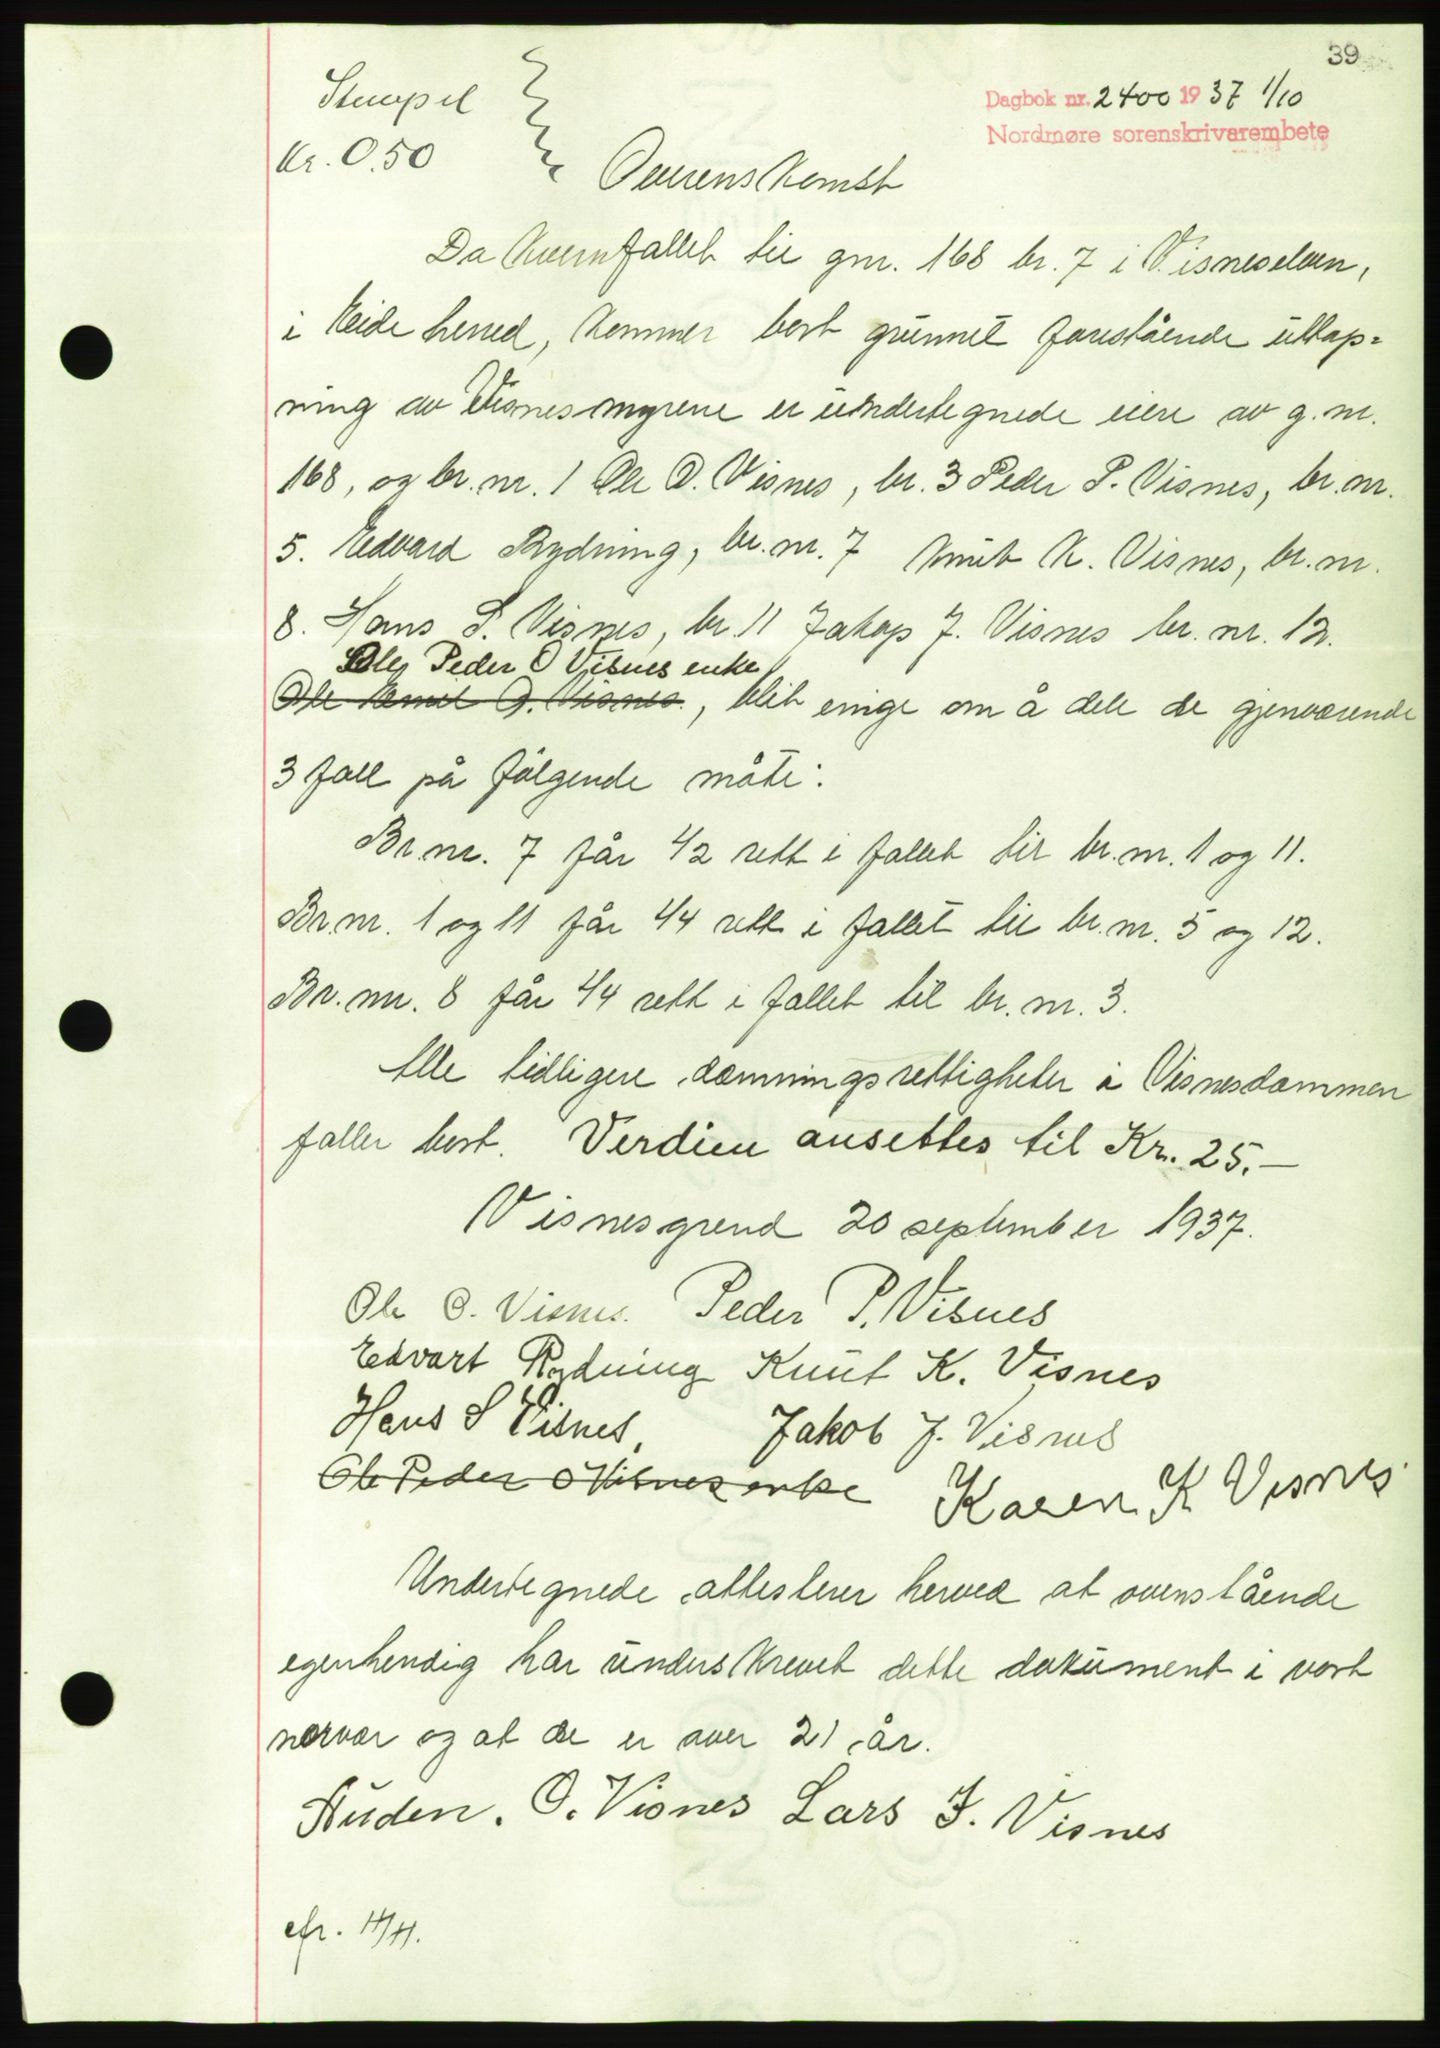 39
Stempel
Kr. 0.50
Dagbok nr. 2400 1937 1/10
Nordmøre sorenskrivarembete
Overenskomst
Da kvernfallet til gnr. 168 br. 7 i Visneselven,
i Eide herred, kommer bort grunnet forestående uttap=
ning av Visnesmyrene er undertegnede eiere av g. nr.
168, og br. nr. 1 Ole O. Visnes, br. 3 Peder P. Visnes, br. nr.
5. Edvard Rydning, br. nr. 7 Knut K. Visnes, br. nr.
8. Hans S. Visnes, br. 11 Jakop J. Visnes br. nr. 12.
Ole Peder O Visnes enke
Ole Emil O. Visnes, blit enige om å dele de gjenværende
3 fall på følgende måte:
Br. nr. 7 får 1/2 rett i fallet til br. nr. 1 og 11.
Br. nr. 1 og 11 får 1/4 rett i fallet til br. nr. 5 og 12.
Br. nr. 8 får 1/4 rett i fallet til br. nr. 3.
Alle tidligere demningsrettigheter i Visnesdammen
faller bort. Verdien ansettes til Kr. 25.-
Visnesgrend 20 september 1937.
Ole O. Visnes. Peder P. Visnes
Edvart Rydning Knut K. Visnes
Hans S Visnes, Jakob J. Visnes
Ole Peder O Visnes enke Karen K Visnes
Undertegnede attesterer herved at ovenstående
egenhendig har underskrevet dette dokument i vort
nærvær og at de er over 21 år.
Auden. O. Visnes Lars J. Visnes